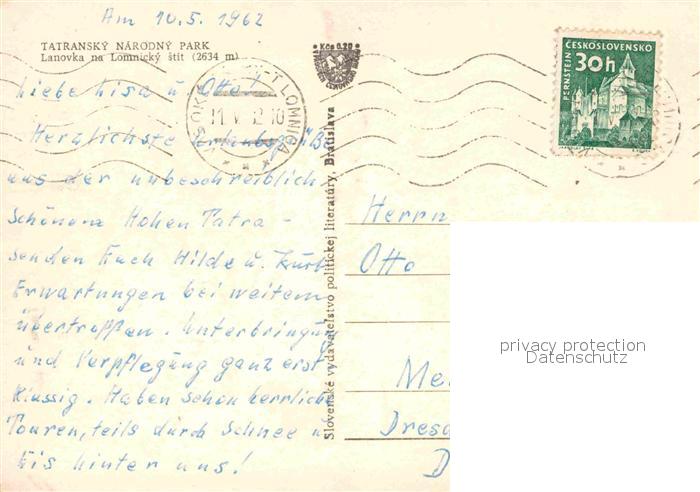 Am 10.5.1962
TATRANSKÝ NÁRODNÝ PARK
Lanovka na Lomnický štít (2634 m)
Kčs 0.20
Liebe Lisa u. Otto!
Herzlichste Urlaubsgrüße
aus der unbeschreiblich
schönen Hohen Tatra -
senden Euch Hilde u. Kurt
Erwartungen bei weitem
übertroffen. Unterbringung
und Verpflegung ganz erst
klassig. Haben schon herrliche
Touren, teils durch Schnee u
Eis hinter uns!
Slovenské vydavateľstvo politickej literatúry, Bratislava
LOMNICA
ČESKOSLOVENSKO
PERNŠTEJN
30h
Herrn
Otto
Me
Dresd
D
privacy protection
Datenschutz